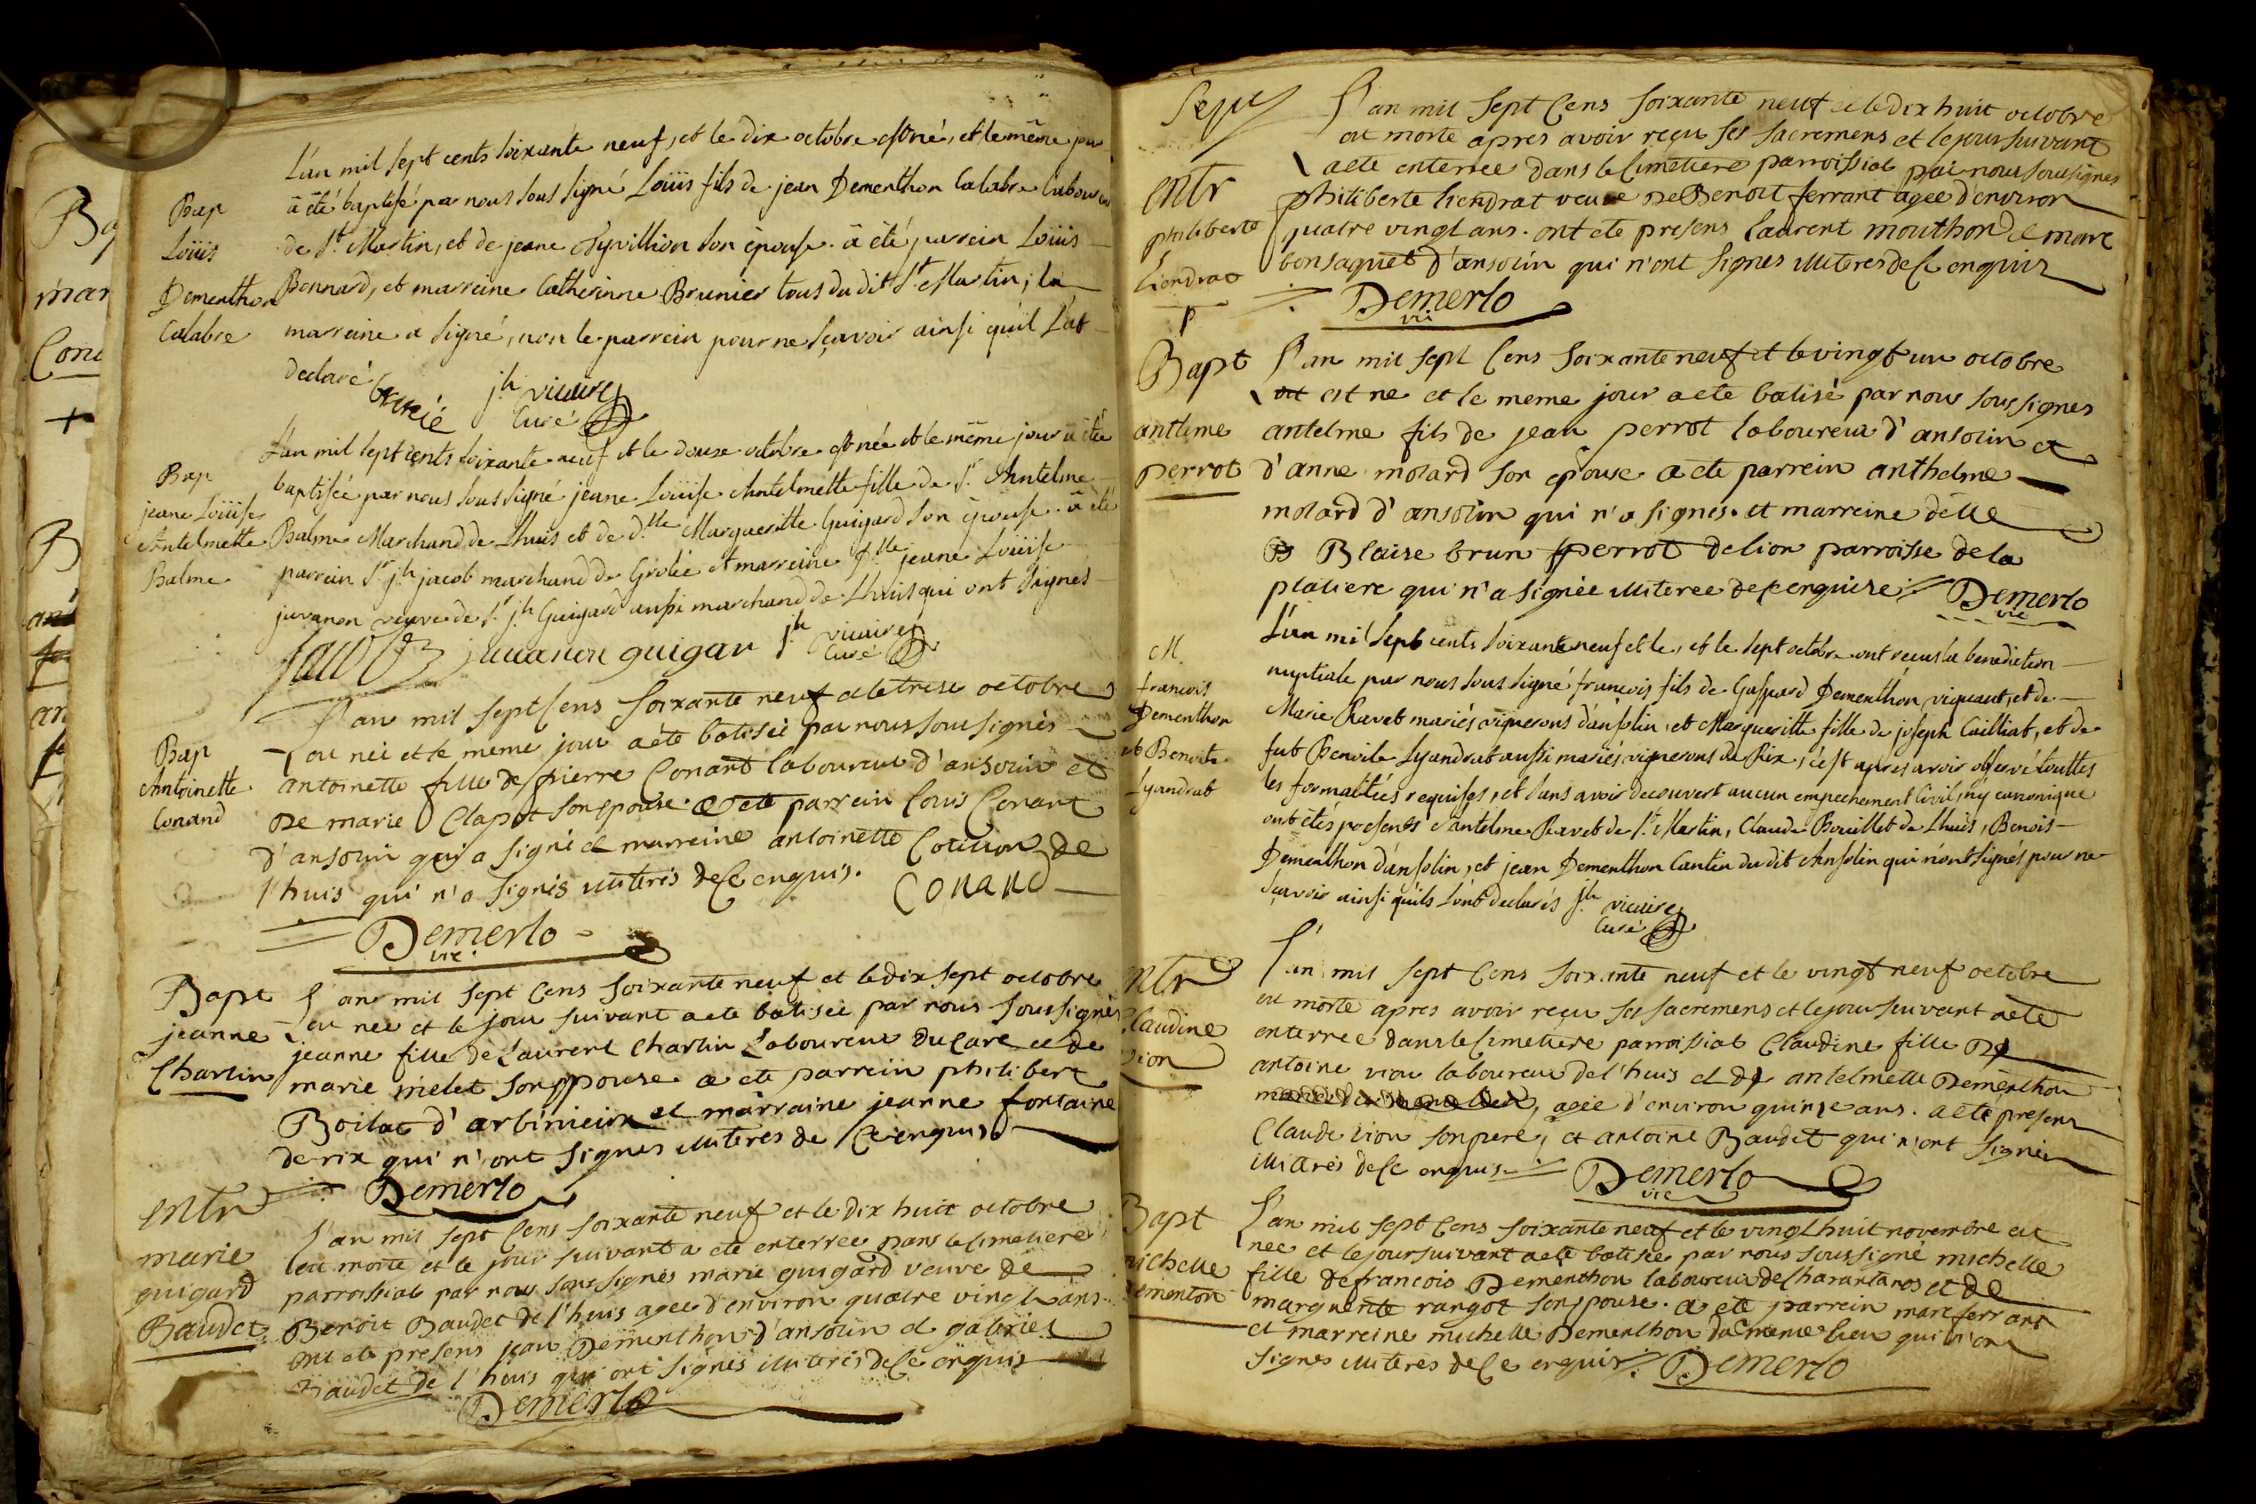 L'an mil sept cents soixante neuf, et le dix octobre est né, et le même jour
Bap
a été baptisé par nous sous signé Loüis fils de jean Dementhon Calabre laboureur
Loüis
de St Martin, et de jeane son épouse. a été parrein Loüis
Dementhon
Bonnard, et marreine Catherinne Brunier tous du dit St Martin; la
Calabre
marreine a signé, non le parrein pour ne sçavoir ainsi qu'il l'at
declaré
jh vicaire
Curé
L'an mil sept cents soixante neuf et le douze octobre est née et le même jour a été
Bap
baptisée par nous sous signé jeane Loüise Antelmette fille de sr. Antelme
jeane Loüise
Balme Marchand de Lhuis et de dlle Margueritte Guigard son épouse. a été
Antelmette
parrein Sr jh jacob marchand de Grolée et marreine Dlle jeane Loüise
Balme
juvanon veuve de sr. jh Guigard aussi marchand de Lhuis qui ont signés
jacob juuanon guigar jh vicaire
Curé
L'an mil sept Cens soixante neuf et le trese octobre
est née et le meme jour a été batisée par nous soussignés
Bap
antoinette fille de pierre Conant laboureur d'ansolin et
Antoinette
De marie Clapot son epouse a ete parrein Louis Conant
Conand
d'ansolin qui a signé et marreine antoinette de
l'huis qui n'a signés illiteris de ce enquis.
Conand
Demerlo
vic
Bapt
L'an mil sept Cens soixante neuf et le dix sept octobre
jeanne
est nee et le jour suivant a ete batisée par nous soussignés
Charlin
jeanne fille de Laurent Charlin Laboureur du Care et de
marie melet son epouse a ete parrein philibert
Boilat d' et marraine jeanne fontaine
de rix qui n'ont signes illiteres de Ce enquis
Demerlo
entr
L'an mil sept Cens soixante neuf et le dix huit octobre
marie
est morte et le jour suivant a ete enterree dans le Cimetiere
guigard
parroissial par nous sous signés marie guigard veuve de
Baudet
Benoit Baudet de l'huis agee d'environ quatre vingt ans
ont ete presens jean Dementhon d'ansolin et gabriel
Baudet de l'huis qui ont signés illiteris de Ce enquis
Demerlo
Sept
L'an mil sept Cens soixante neuf et le dix huit octobre
est morte apres avoir reçu ses sacremens et le jour suivant
a ete enterree dans le Cimetiere parroissial par nous soussignes
entr
philiberte liendrat veuve De Benoit ferrant agee d'environ
philiberte
quatre vingt ans. ont ete presens laurent mouthon et marc
liendrat
bonsaquet d'ansolin qui n'ont signes illiteres de Ce enquis
Demerlo
vic
Bapt
L'an mil sept Cens soixante neuf et le vingt un octobre
est ne et le meme jour a ete batisé par nous soussignes
antleme
antelme fils de jean perrot laboureur d'ansolin et
perrot
d'anne molard son epouse a ete parrein anthelme
molard d'ansolin qui n'a signés. et marreine delle
Blaise brun perrot de lion parroisse de la
platiere qui n'a signée illiteree de Ce enquise Demerlo
vic
L'an mil sept cents soixante neuf et le, et le sept octobre ont recus la benediction
M.
nuptiale par nous sous signé francois fils de Gaspard Dementhon vigneront, et de
francois
Marie Ravet mariés vignerons d'ansolin, et Margueritte fille de joseph Cailliat, et de
Dementhon
fut Benoite Lyandrat aussi mariés, vignerons de Rix, c'est apres avoir observé touttes
et Benoite
les formalitiés requises, et sans avoir decouvert aucun empechement Civil, ny canonique
Lyandrat
ont étés presents antelme Ravet de St Martin, Claude Bouillet de Lhuis, Benois
Dementhon d'ansolin, et jean Dementhon Cantin du dit Ansolin qui n'ont signés pour ne
sçavoir ainsi qu'ils l'ont declarés jh vicaire
Curé
L'an mil sept Cens soixante neuf et le vingt neuf octobre
entr
est morte apres avoir reçu ses sacremens et le jour suivant a ete
claudine
enterree dans le Cimetiere parroissial Claudine fille De
antoine laboureur de l'huis et de antelmette Dementhon
agée d'environ quinze ans. a ete presens
Claude son pere, et antoine Baudet qui n'ont signés
illitres de Ce enquis Demerlo
vic
Bapt
L'an mil sept Cens soixante neuf et le vingt huit novembre est
nee et le jour suivant a ete batisée par nous soussigné michelle
michelle
fille de francois Dementhon laboureur de et de
dementon
marguerite rangot son epouse. a ete parrein marc ferrant
et marreine michelle Dementhon du meme lieu qui n'ont
signes illiteres de Ce enquis Demerlo